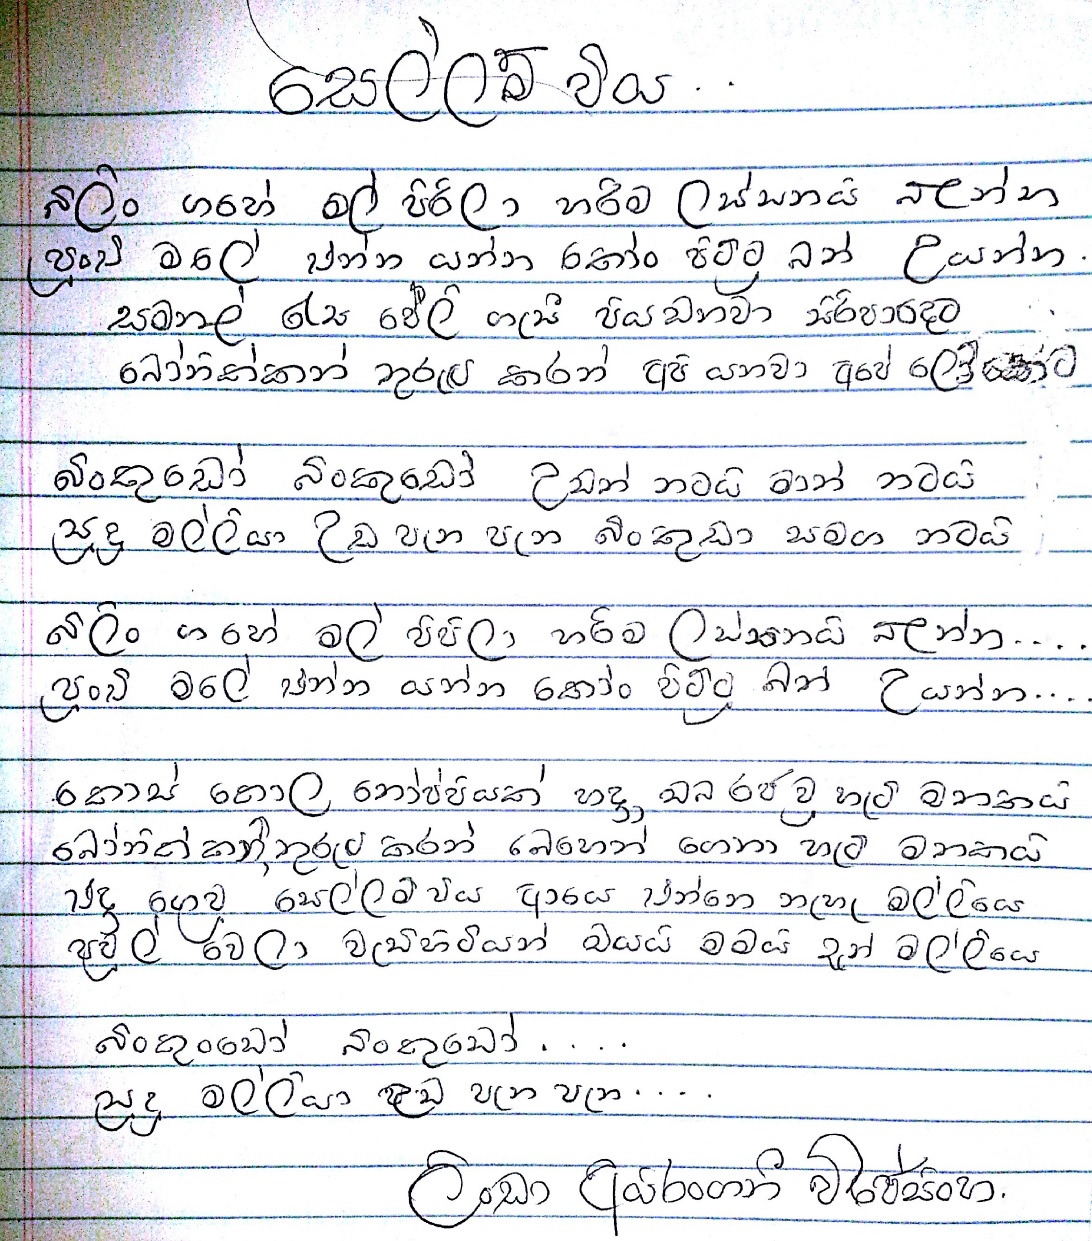 සෙල්ලම් විය . .
බිලිං ගහේ මල් පිරිලා හරිම ලස්සනයි බලන්න
පුංචි මලේ එන්න යන්න කෝං පිට්ටු බත් උයන්න .
සමනල් රැස පේලි ගැසී පියඹනවා සිරිපාදෙට
බෝනික්කන් තුරුලු කරන් අපි යනවා අපේ
බිංකුඩෝ බිංකුඩෝ උඩත් නටයි මාත් නටයි
සුදු මල්ලියා උඩ පැන පැන බිංකුඩා සමග නටයි
බිලිං ගහේ මල් පිපිලා හරිම ලස්සනයි බලන්න....
පුංචි මලේ එන්න යන්න කෝං පිට්ටු බත් උයන්න....
කොස් කොල තොප්පියක් හදා ඔබ රජ වූ හැටි මතකයි
බෝනික් කන් තුරුලු කරන් බෙහෙත් ගෙනා හැටි මතකයි
එදා ගෙවූ සෙල්ලම් විය ආයෙ එන්නෙ නැහැ මල්ලියෙ
පවුල් වෙලා වැඩිහිටියන් ඔයයි මමයි දැන් මල්ලියෙ
බිංකුංඩෝ බිංකුඩෝ . . . .
සුදු මල්ලියා උඩ පැන පැන . . . .
ලින්ඩා අයිරාංගනී විජේසිංහ.